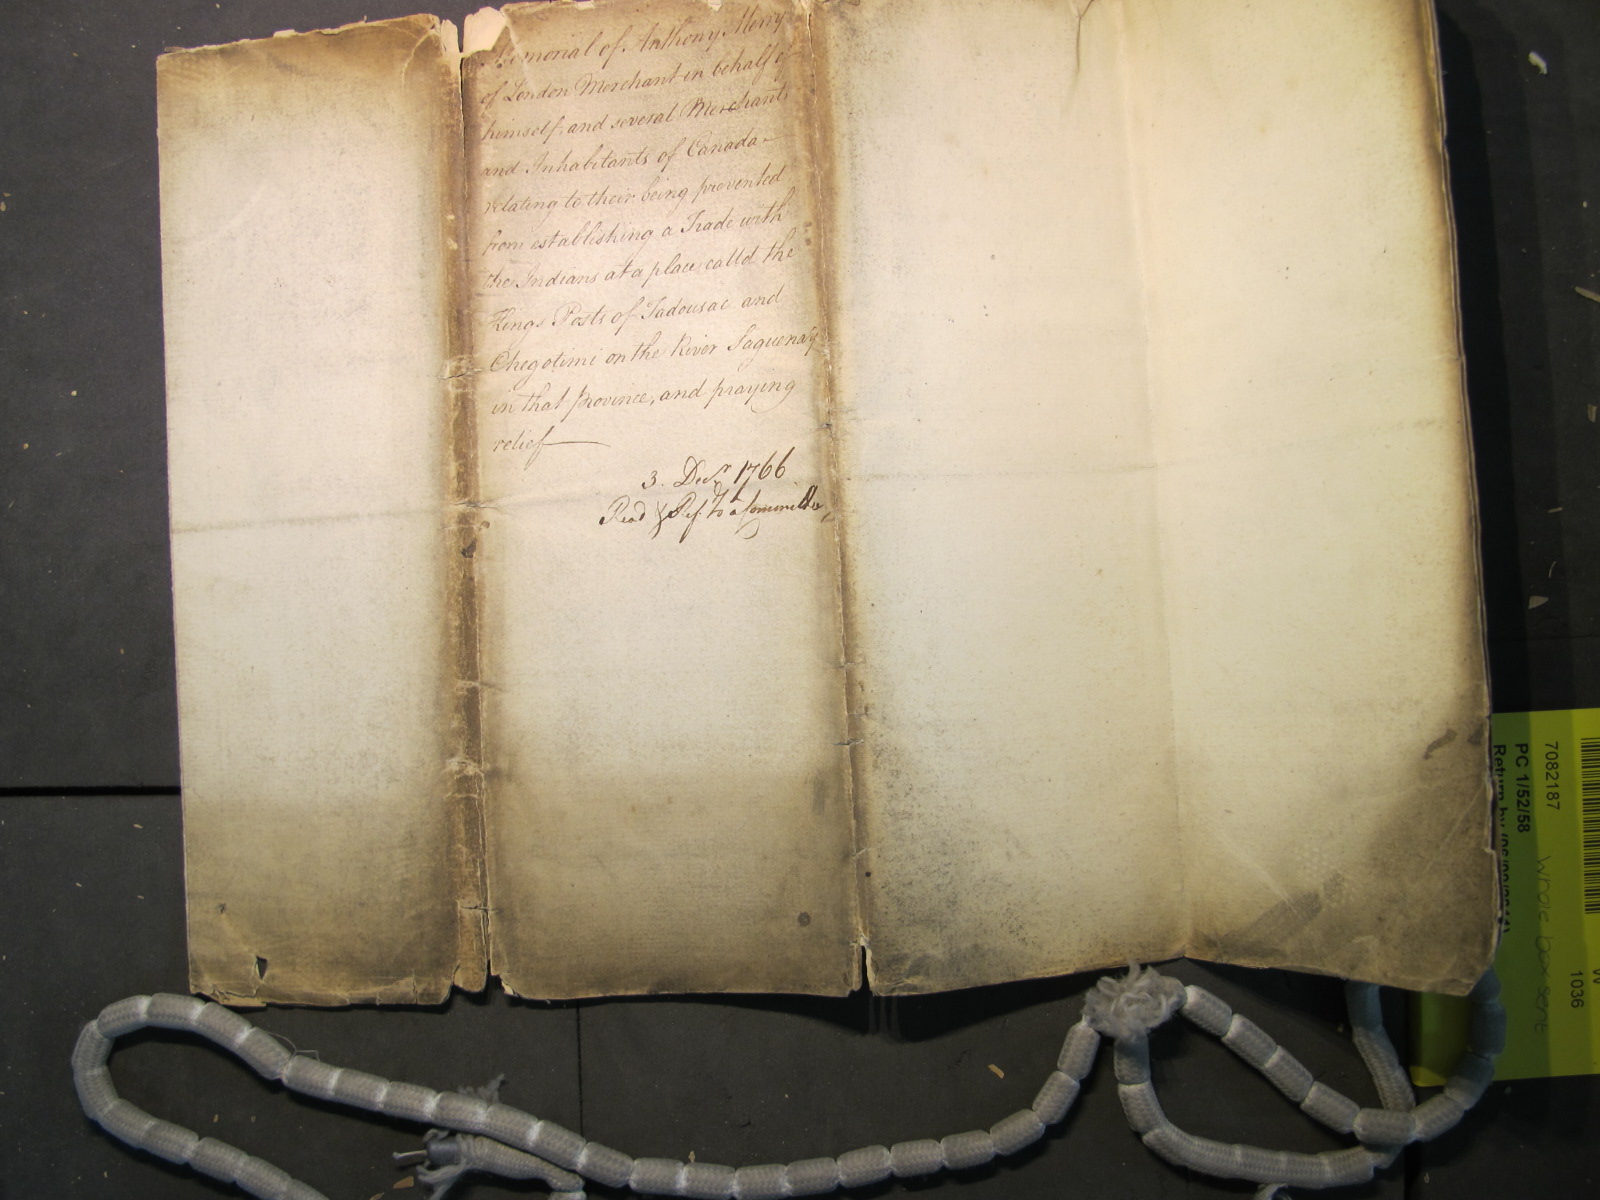 Memorial of Anthony Merry
of London Merchant in behalf of
himself, and several Merchants
and Inhabitants of Canada
relating to their being prevented
from establishing a Trade with
the Indians at a place calld the
Kings Posts of Tadousac and
Chegotimi on the River Saguenay
in that Province, and praying
relief
3. Decr. 1766
Read & Ref. to a Committee
7082187
PC 1/52/58
Return by (06/09/2011)
whole box sent
1036